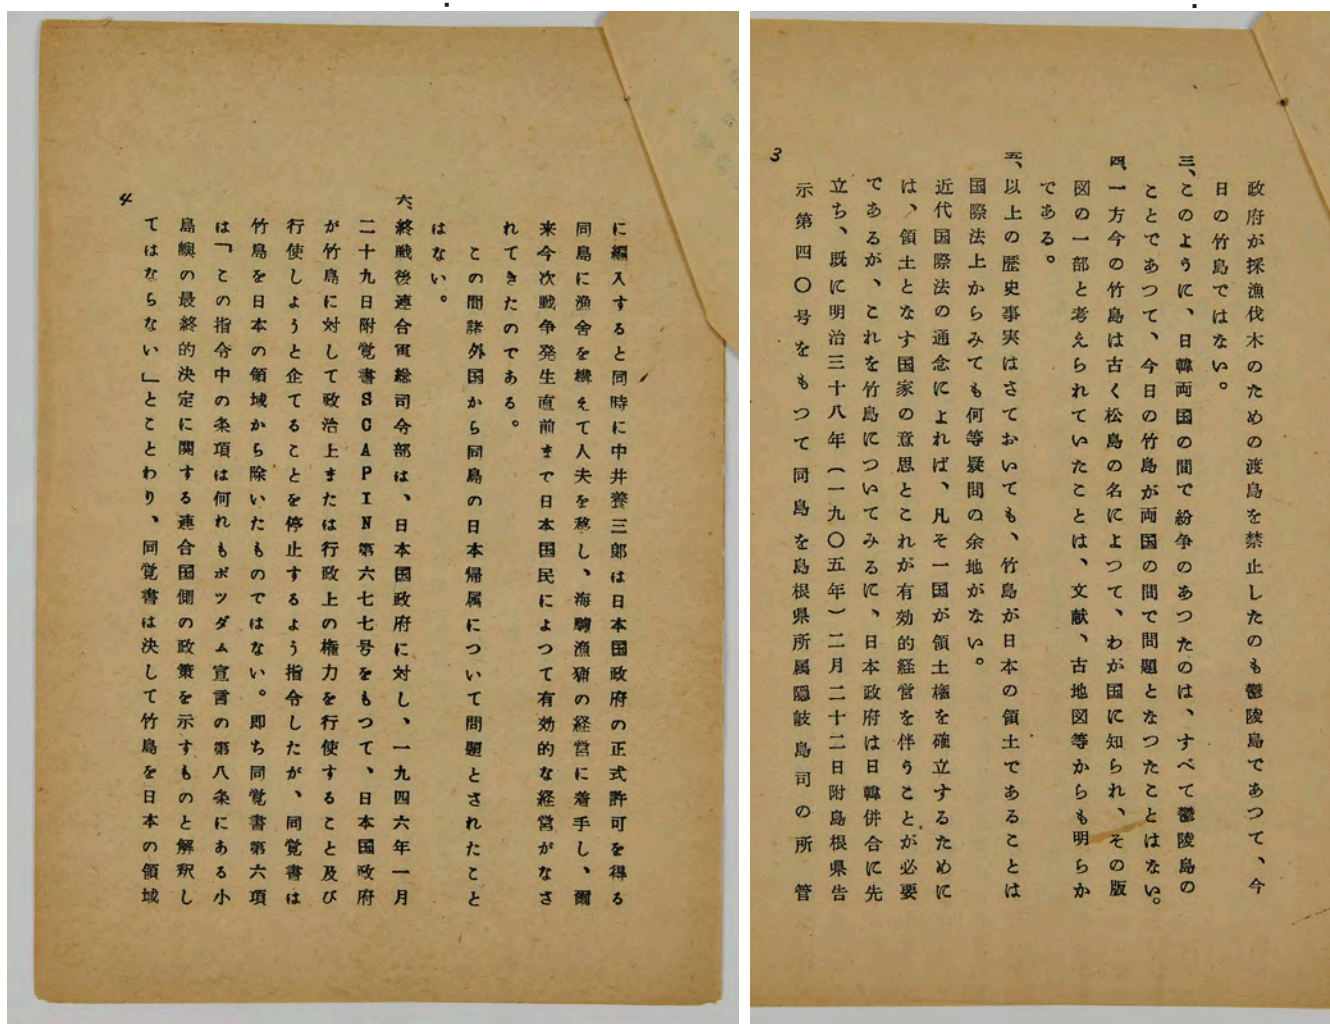 政府が採漁伐木のための渡島を禁止したのも鬱陵島であつて、今
日の竹島ではない。
三、このように、日韓両国の間で紛争のあつたのは、すべて鬱陵島の
ことであつて、今日の竹島が両国の間で問題となつたことはない。
四、一方今の竹島は古く松島の名によつて、わが国に知られ、その版
図の一部と考えられていたことは、文献、古地図等からも明らか
である。
五、以上の歴史事実はさておいても、竹島が日本の領土であることは
国際法上からみても何等疑問の余地がない。
近代国際法の通念によれば、凡そ一国が領土権を確立するために
は、領土となす国家の意思とこれが有効的経営を伴うことが必要
であるが、これを竹島についてみるに、日本政府は日韓併合に先
立ち、既に明治三十八年(一九〇五年)二月二十二日附島根県告
示第四〇号をもつて同島を島根県所属隠岐島司の所管
3
に編入すると同時に中井養三郎は日本国政府の正式許可を得る
同島に漁舎を構えて人夫を移し、海驢漁猟の経営に着手し、爾
来今次戦争発生直前まで日本国民によつて有効的な経営がなさ
れてきたのである。
この間諸外国から同島の日本帰属について問題とされたこと
はない。
六、終戦後連合軍総司令部は、日本国政府に対し、一九四六年一月
二十九日附覚書SCAPIN第六七七号をもつて、日本国政府
が竹島に対して政治上または行政上の権力を行使すること及び
行使しようと企てることを停止するよう指令したが、同覚書は
竹島を日本の領域から除いたものではない。即ち同覚書第六項
は「この指令中の条項は何れもポツダム宣言の第八条にある小
島嶼の最終的決定に関する連合国側の政策を示すものと解釈し
てはならない」とことわり、同覚書は決して竹島を日本の領域
4